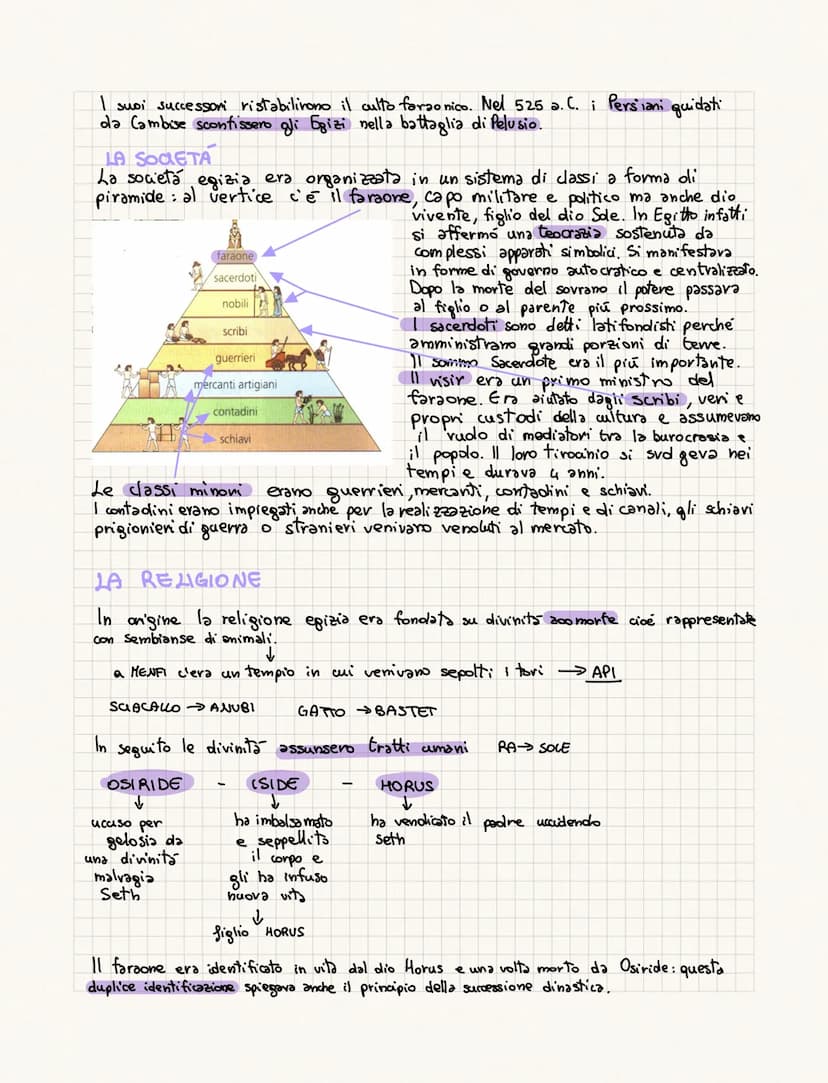 I suoi successori ristabilirono il culto faraonico. Nel 525 a.C. i Persiani guidati
da Cambise sconfissero gli Egizi nella battaglia di Pelusio.
LA SOCIETÁ
La societá egizia era organizzata in un sistema di classi a forma di
piramide : al vertice c'é il faraone, capo militare e politico ma anche dio
vivente, figlio del dio Sole. In Egitto infatti
si affermó una teocrazia sostenuta da
complessi apparati simbolici. Si manifestava
in forme di governo autocratico e centralizzato.
Dopo la morte del sovrano il potere passava
al figlio o al parente piú prossimo.
I sacerdoti sono detti latifondisti perché
amministravano grandi porzioni di terre.
Il sommo Sacerdote era il piú importante.
Il visir era un primo ministro del
faraone. Era aiutato dagli scribi, veri e
propri custodi della cultura e assumevano
il ruolo di mediatori tra la burocrazia e
il popolo. Il loro tirocinio si svolgeva nei
tempi e durava 4 anni.
faraone
sacerdoti
nobili
scribi
guerrieri
mercanti artigiani
contadini
schiavi
Le classi minori erano guerrieri, mercanti, contadini e schiavi.
I contadini erano impiegati anche per la realizzazione di tempi e di canali, gli schiavi
prigionieri di guerra o stranieri venivano venduti al mercato.
LA RELIGIONE
In origine la religione egizia era fondata su divinitá zoomorfe cioé rappresentate
con sembianse di animali.
↓
a MENFI c'era un tempio in cui venivano sepolti i tori → API
SCIACALLO → ANUBI GATTO → BASTET
In seguito le divinitá assunsero tratti umani RA → SOLE
OSIRIDE - ISIDE - HORUS
↓ ↓ ↓
ucciso per ha imbalsamato ha vendicato il padre uccidendo
gelosia da e seppellito Seth
una divinitá il corpo e
malvagia gli ha infuso
Seth nuova vita
↓
figlio HORUS
Il faraone era identificato in vita dal dio Horus e una volta morto da Osiride : questa
duplice identificazione spiegava anche il principio della successione dinastica.